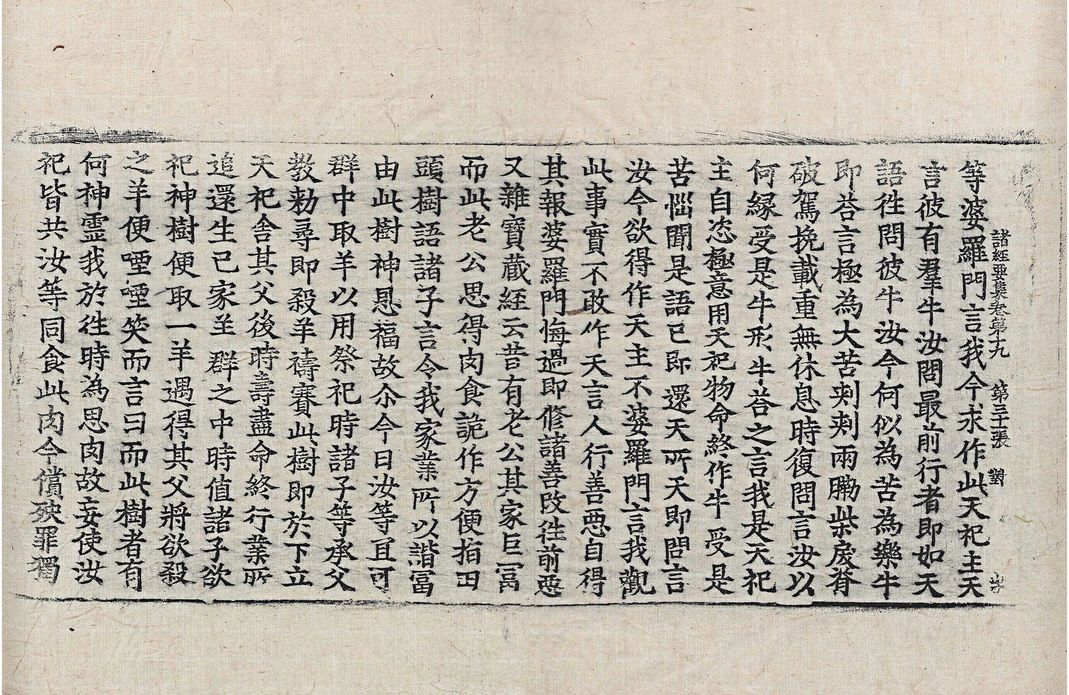 諸經要集卷第十九 第三十張 對
等婆羅門言我今求作此天祀主天
言彼有羣牛汝問最前行者即如天
語徃問彼牛汝今何似為苦為樂牛
即荅言極為大苦刾刾兩肋柴戾脊
破駕挽載重無休息時復問言汝以
何縁受是牛形牛荅之言我是天祀
主自恣極意用天祀物命終作牛受是
苦惱聞是語已即還天所天即問言
汝今欲得作天主不婆羅門言我觀
此事實不敢作天言人行善惡自得
其報婆羅門悔過即修諸善改徃前惡
又雜寶藏經云昔有老公其家巨冨
而此老公思得肉食詭作方便指田
頭樹語諸子言今我家業所以諧冨
由此樹神恩福故尒今日汝等宜可
群中取羊以用祭祀時諸子等承父
教勑尋即殺羊禱賽此樹即於下立
天祀舍其父後時壽盡命終行業所
追還生己家羊群之中時值諸子欲
祀神樹便取一羊遇得其父將欲殺
之羊便唖唖笑而言曰而此樹者有
何神靈我於徃時為思肉故妄使汝
祀皆共汝等同食此肉今償殃罪獨